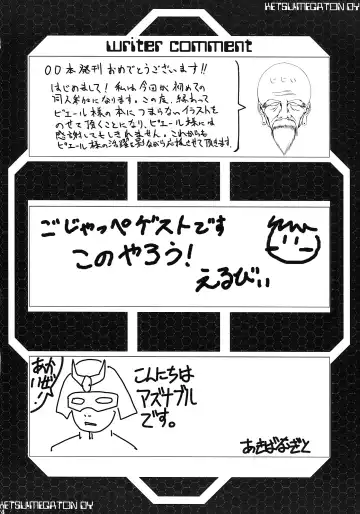 KETSUMEGATON DY
writer comment
○○本発刊おめでとうございます!!
はじめまして!私は今回が初めての
同人参加になります。この度、縁あって
ピエール様の本につまらないイラストを
のせて頂くことになり、ピエール様には
感謝してもしきれません。これからも
ピエール様の活躍を影ながら応援させて頂きます。
ごじゃっぺゲストです
このやろう!
えるびぃ
あかいぜ!!
こんにちは
アズナブル
です。
あきばなざと
KETSUMEGATON DY